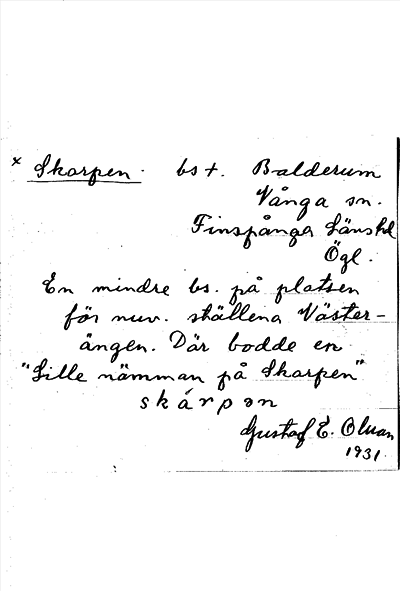 x Skarpen. bs +. Balderum
Vånga sn.
Finspånga Länshd
Ögl.
En mindre bs. på platsen
för nuv. ställena Väster-
ängen. Där bodde en
"Lille nämman på Skarpen"
skárpən
Gustaf E. Olman
1931.